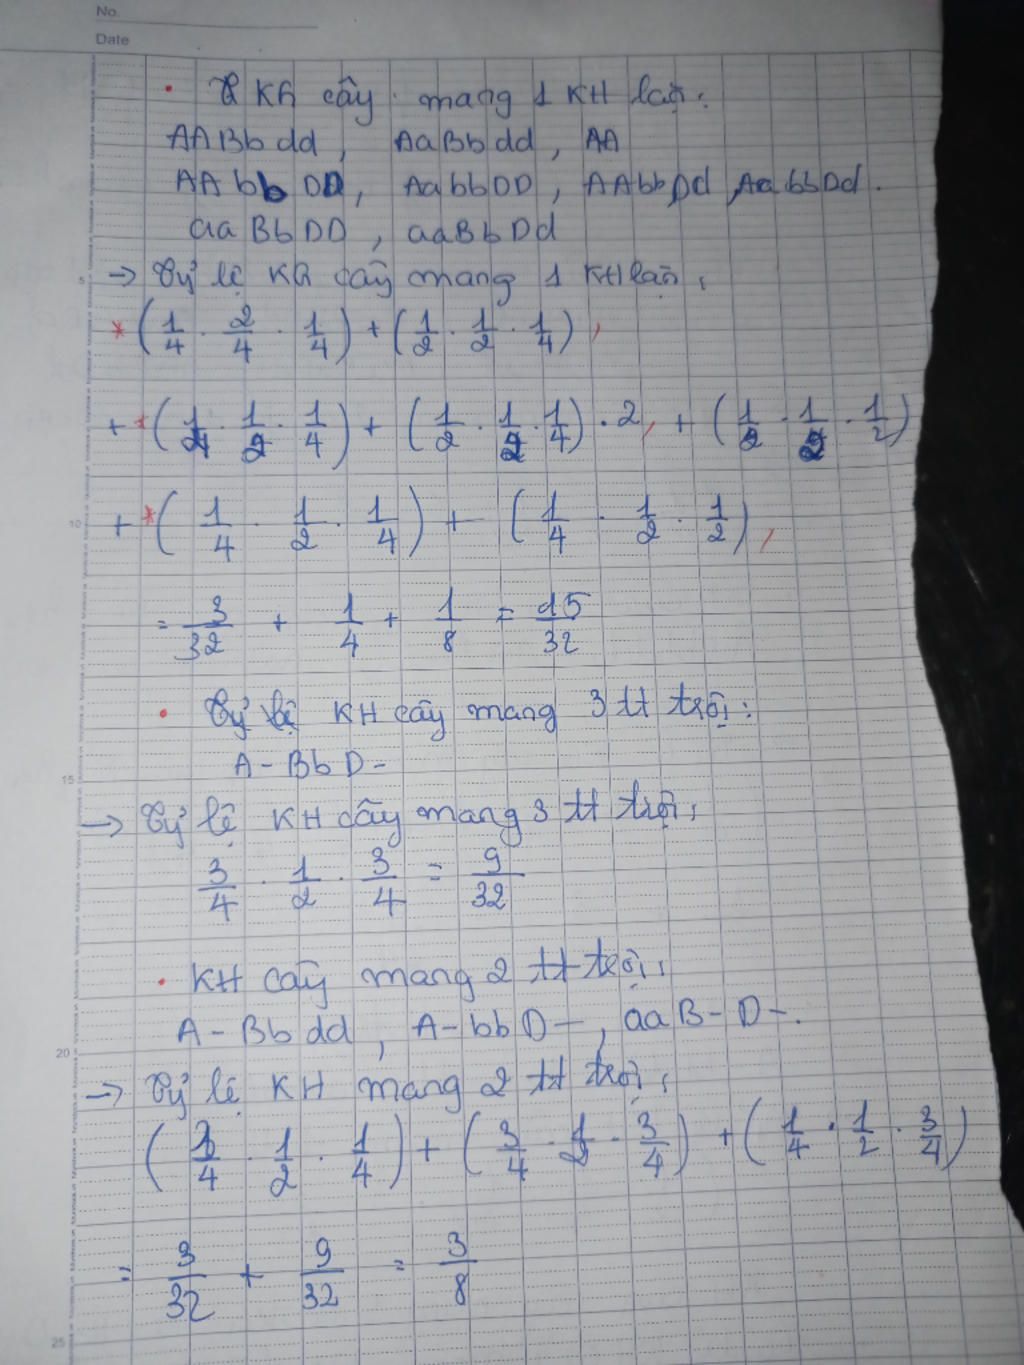 No.
Date
KG cây mang 1 KH lặn:
AABbdd, AaBbdd, AA
AAbbDD, AabbDD, AAbbDd, AabbDd.
aaBbDD, aaBbDd
→ Tỷ lệ KG cây mang 1 KH lặn:
* (1/4 . 2/4 . 1/4) + (1/2 . 1/2 . 1/4),
+ * (1/4 . 1/2 . 1/4) + (1/2 . 1/2 . 1/4) . 2, + (1/2 . 1/2 . 1/2)
+ * (1/4 . 1/2 . 1/4) + (1/4 . 1/2 . 1/2),
= 3/32 + 1/4 + 1/8 = 15/32
• Tỷ lệ KH cây mang 3 tt trội:
A-BbD-
→ Tỷ lệ KH cây mang 3 tt trội:
3/4 . 1/2 . 3/4 = 9/32
• KH cây mang 2 tt trội:
A-Bbdd, A-bbD-, aaB-D-.
→ Tỷ lệ KH mang 2 tt trội:
(3/4 . 1/2 . 1/4) + (3/4 . 1/2 . 3/4) + (1/4 . 1/2 . 3/4)
= 3/32 + 9/32 = 3/8
5
10
15
20
25